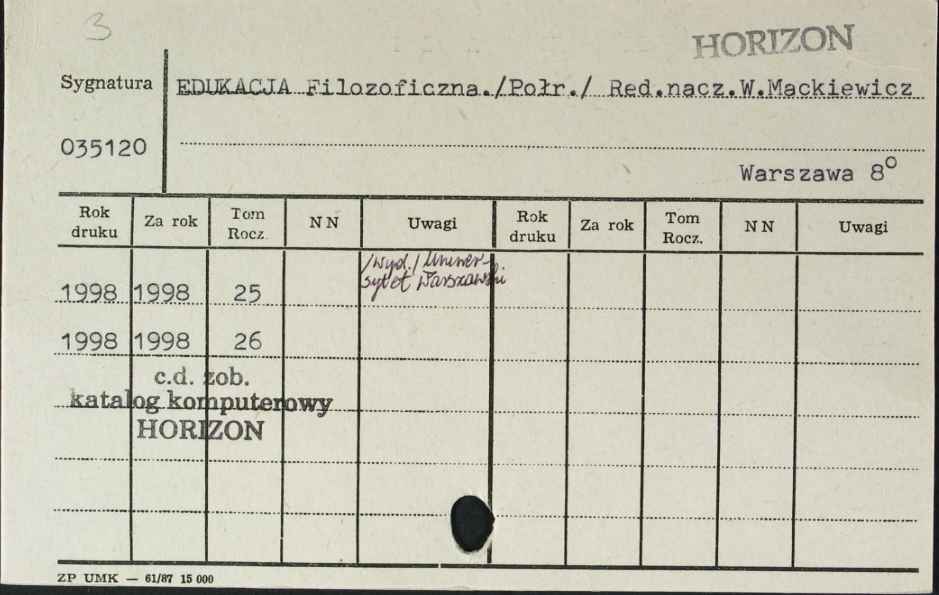 3
HORIZON
Sygnatura EDUKACJA Filozoficzna./Połr./ Red.nacz.W.Mackiewicz
035120
Warszawa 8°
Rok druku Za rok Tom Rocz. NN Uwagi Rok druku Za rok Tom Rocz. NN Uwagi
/wyd./ Uniwer-
sytet Warszawski
1998 1998 25
1998 1998 26
c.d. zob.
katalog komputerowy
HORIZON
ZP UMK — 61/87 15 000